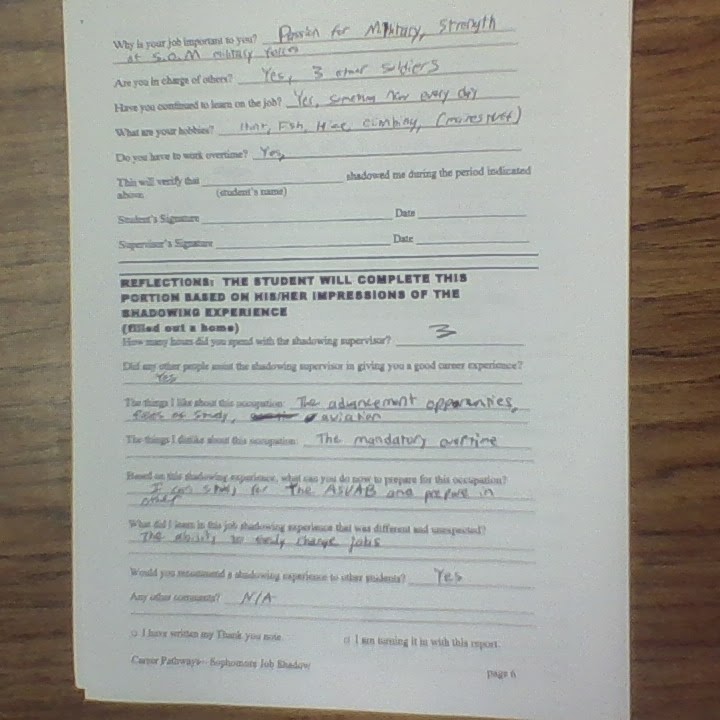 Why is your job important to you? Passion for Military, Strength
at S.O.M military forces
Are you in charge of others? Yes, 3 other soldiers
Have you continued to learn on the job? Yes, something new every day
What are your hobbies? Hunt, Fish, Hike, climbing,
Do you have to work overtime? Yes
This will verify that ____ shadowed me during the period indicated
above. (student's name)
Student's Signature ____ Date ____
Supervisor's Signature ____ Date ____
REFLECTIONS: THE STUDENT WILL COMPLETE THIS
PORTION BASED ON HIS/HER IMPRESSIONS OF THE
SHADOWING EXPERIENCE
(filled out a home)
How many hours did you spend with the shadowing supervisor? 3
Did any other people assist the shadowing supervisor in giving you a good career experience?
Yes
The things I like about this occupation: The advancement
of study, aviation
The things I dislike about this occupation: The mandatory overtime
Based on this shadowing experience, what can you do now to prepare for this occupation?
I can study for the ASVAB and prepare in
other
What did I learn in this job shadowing experience that was different and unexpected?
The ability to easily change jobs
Would you recommend a shadowing experience to other students? Yes
Any other comments? N/A
□ I have written my Thank you note. □ I am turning it in with this report.
Career Pathways - Sophomore Job Shadow page 6